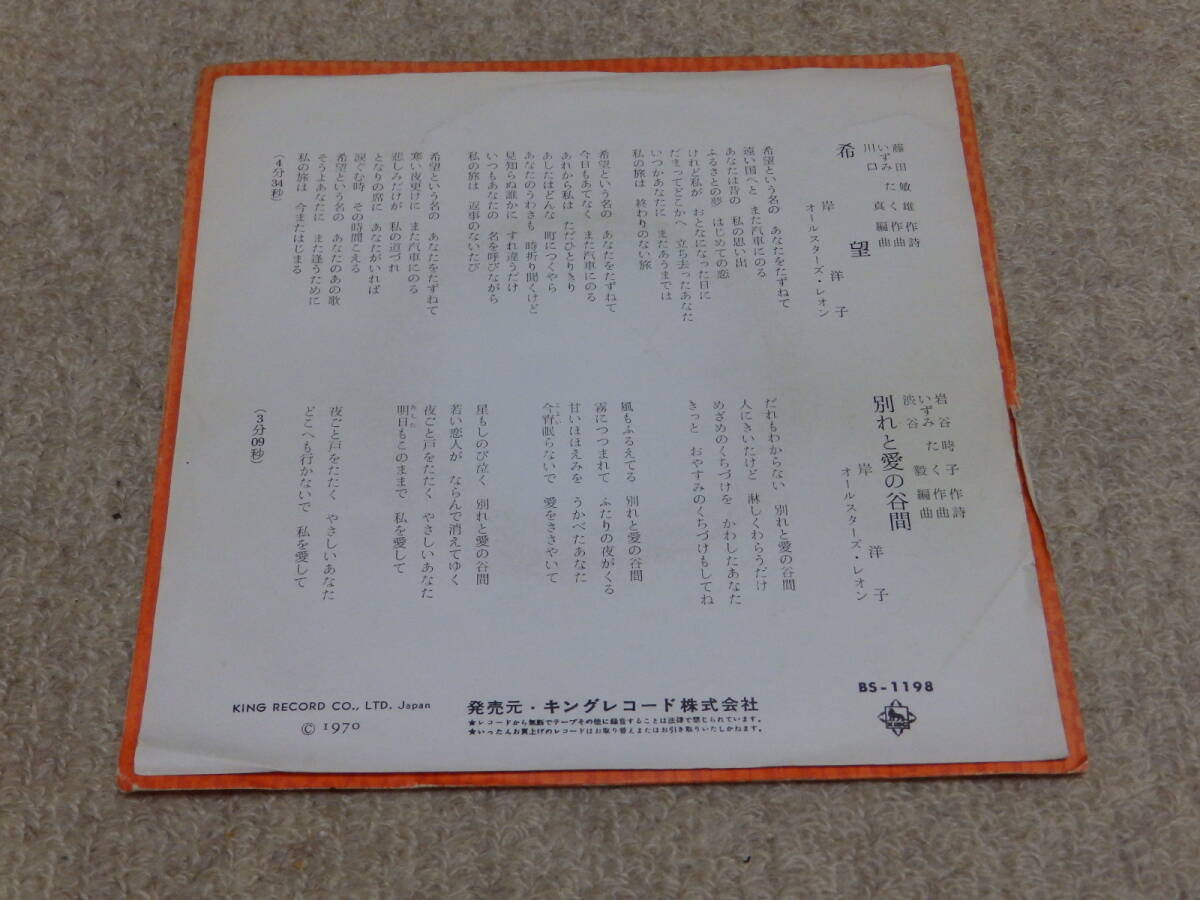 藤田敏雄 作詩
いずみたく 作曲
川口真 編曲
希望
岸洋子
オールスターズ・レオン
希望という名の あなたをたずねて
遠い国へと また汽車にのる
あなたは昔の 私の思い出
ふるさとの夢 はじめての恋
けれど私が おとなになった日に
だまってどこかへ 立ち去ったあなた
いつかあなたに またあうまでは
私の旅は 終わりのない旅
希望という名の あなたをたずねて
今日もあてなく また汽車にのる
あれから私は ただひとりきり
あしたはどんな 町につくやら
あなたのうわさも 時折り聞くけど
見知らぬ誰かに すれ違うだけ
いつもあなたの 名を呼びながら
私の旅は 返事のないたび
希望という名の あなたをたずねて
寒い夜更けに また汽車にのる
悲しみだけが 私の道づれ
となりの席に あなたがいれば
涙ぐむ時 その時聞こえる
希望という名の あなたのあの歌
そうよあなたに また逢うために
私の旅は 今またはじまる
(4分34秒)
岩谷時子 作詩
いずみたく 作曲
渋谷毅 編曲
別れと愛の谷間
岸洋子
オールスターズ・レオン
だれもわからない 別れと愛の谷間
人にきいたけど 淋しくわらうだけ
めざめのくちづけを かわしたあなた
きっと おやすみのくちづけもしてね
風もふるえてる 別れと愛の谷間
霧につつまれて ふたりの夜がくる
甘いほほえみを うかべたあなた
今宵眠らないで 愛をささやいて
星もしのび泣く 別れと愛の谷間
若い恋人が ならんで消えてゆく
夜ごと戸をたたく やさしいあなた
明日もこのままで 私を愛して
夜ごと戸をたたく やさしいあなた
どこへも行かないで 私を愛して
(3分09秒)
BS-1198
KING RECORD CO., LTD. Japan
© 1970
発売元・キングレコード株式会社
★レコードから無断でテープその他に録音することは法律で禁じられています。
★いったんお買上げのレコードはお取り替えまたはお引き取りいたしかねます。